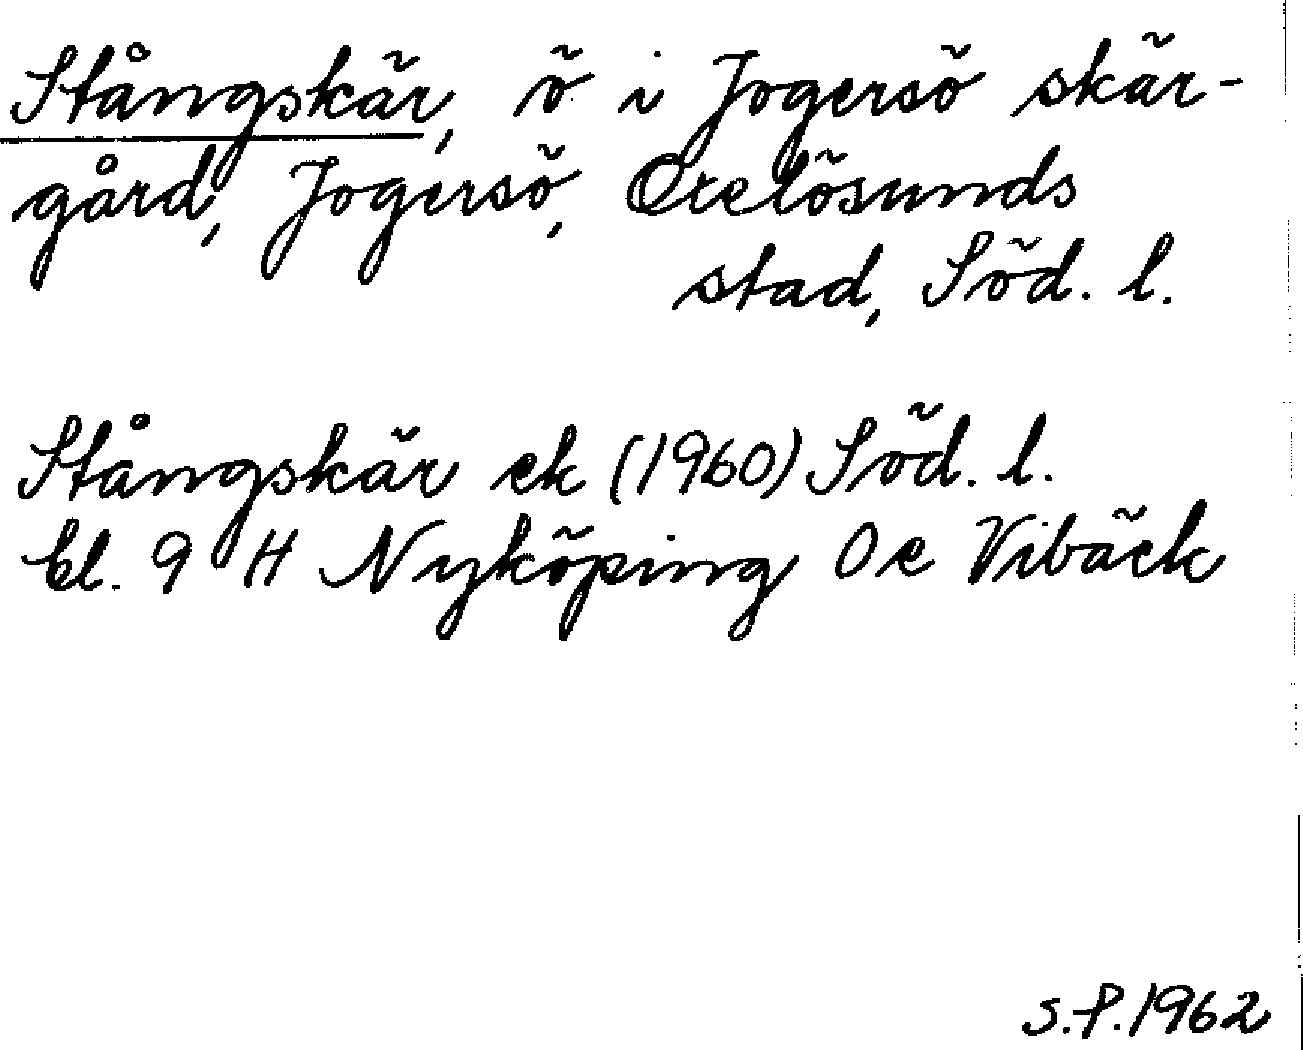 Stångskär, ö i Jogersö skär-
gård, Jogersö, Oxelösunds
stad, Söd. l.
Stångskär ek (1960) Söd. l.
bl. 9 H Nyköping Oe Vibäck
S.P. 1962